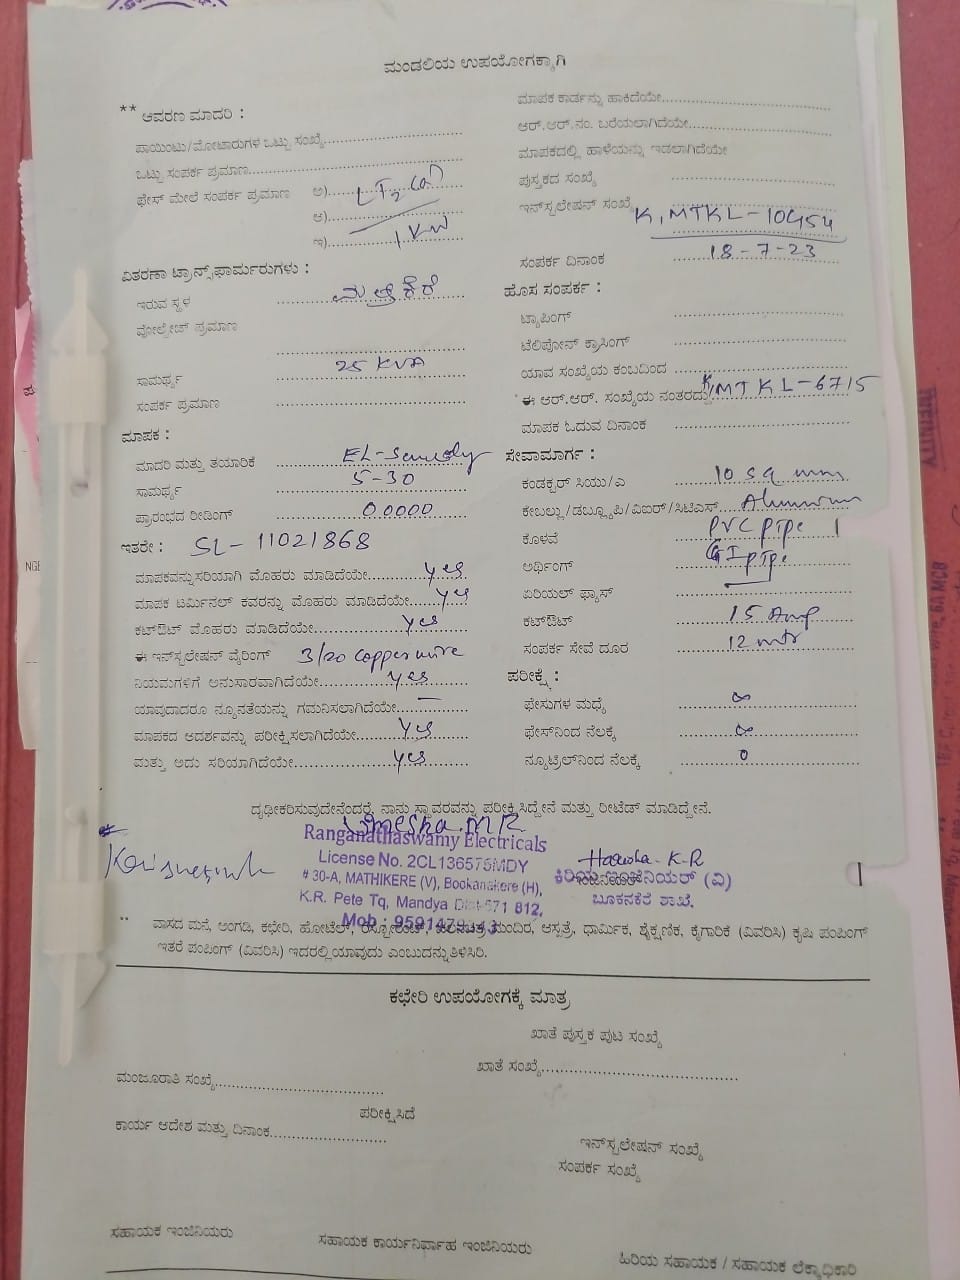 ಮಂಡಲಿಯ ಉಪಯೋಗಕ್ಕಾಗಿ
** ಆವರಣ ಮಾದರಿ :
ಪಾಯಿಂಟು/ಮೋಟಾರುಗಳ ಒಟ್ಟು ಸಂಖ್ಯೆ
ಒಟ್ಟು ಸಂಪರ್ಕ ಪ್ರಮಾಣ
ಫೇಸ್ ಮೇಲೆ ಸಂಪರ್ಕ ಪ್ರಮಾಣ ಅ)
ಆ)
ಇ) 1 KW
ವಿತರಣಾ ಟ್ರಾನ್ಸ್‌ಫಾರ್ಮರುಗಳು :
ಇರುವ ಸ್ಥಳ
ವೋಲ್ಟೇಜ್ ಪ್ರಮಾಣ
ಸಾಮರ್ಥ್ಯ 25 KVA
ಸಂಪರ್ಕ ಪ್ರಮಾಣ
ಮಾಪಕ :
ಮಾದರಿ ಮತ್ತು ತಯಾರಿಕೆ
ಸಾಮರ್ಥ್ಯ 5-30
ಪ್ರಾರಂಭದ ರೀಡಿಂಗ್ 00000
ಇತರೇ : SL-11021868
ಮಾಪಕವನ್ನುಸರಿಯಾಗಿ ಮೊಹರು ಮಾಡಿದೆಯೇ yes
ಮಾಪಕ ಟರ್ಮಿನಲ್ ಕವರನ್ನು ಮೊಹರು ಮಾಡಿದೆಯೇ yes
ಕಟ್‌ಔಟ್ ಮೊಹರು ಮಾಡಿದೆಯೇ yes
ಈ ಇನ್‌ಸ್ಟಲೇಷನ್ ವೈರಿಂಗ್ 3/20 copper wire
ನಿಯಮಗಳಿಗೆ ಅನುಸಾರವಾಗಿದೆಯೇ yes
ಯಾವುದಾದರೂ ನ್ಯೂನತೆಯನ್ನು ಗಮನಿಸಲಾಗಿದೆಯೇ —
ಮಾಪಕದ ಆದರ್ಶವನ್ನು ಪರೀಕ್ಷಿಸಲಾಗಿದೆಯೇ yes
ಮತ್ತು ಅದು ಸರಿಯಾಗಿದೆಯೇ yes
ಮಾಪಕ ಕಾರ್ಡನ್ನು ಹಾಕಿದೆಯೇ
ಆರ್.ಆರ್.ನಂ. ಬರೆಯಲಾಗಿದೆಯೇ
ಮಾಪಕದಲ್ಲಿ ಹಾಳೆಯನ್ನು ಇಡಲಾಗಿದೆಯೇ
ಪುಸ್ತಕದ ಸಂಖ್ಯೆ
ಇನ್‌ಸ್ಟಲೇಷನ್ ಸಂಖ್ಯೆ K, MTKL-10454
ಸಂಪರ್ಕ ದಿನಾಂಕ 18-7-23
ಹೊಸ ಸಂಪರ್ಕ :
ಟ್ಯಾಪಿಂಗ್
ಟೆಲಿಫೋನ್ ಕ್ರಾಸಿಂಗ್
ಯಾವ ಸಂಖ್ಯೆಯ ಕಂಬದಿಂದ
ಈ ಆರ್.ಆರ್. ಸಂಖ್ಯೆಯ ನಂತರದ್ದು K, MTKL-6715
ಮಾಪಕ ಓದುವ ದಿನಾಂಕ
ಸೇವಾಮಾರ್ಗ :
ಕಂಡಕ್ಟರ್ ಸಿಯು/ಎ 10 sq mm
ಕೇಬಲ್ಲು/ಡಬ್ಲ್ಯೂಪಿ/ವಿಐರ್/ಸಿಟಿಎಸ್ Aluminium
ಕೊಳವೆ PVC pipe
ಅರ್ಥಿಂಗ್ GI pipe
ಏರಿಯಲ್ ಫ್ಯೂಸ್
ಕಟ್‌ಔಟ್ 15 Amp
ಸಂಪರ್ಕ ಸೇವೆ ದೂರ 12 mtr
ಪರೀಕ್ಷೆ :
ಫೇಸುಗಳ ಮಧ್ಯೆ ∞
ಫೇಸ್‌ನಿಂದ ನೆಲಕ್ಕೆ ∞
ನ್ಯೂಟ್ರಲ್‌ನಿಂದ ನೆಲಕ್ಕೆ 0
ದೃಢೀಕರಿಸುವುದೇನೆಂದರೆ, ನಾನು ಸ್ಥಾವರವನ್ನು ಪರೀಕ್ಷಿಸಿದ್ದೇನೆ ಮತ್ತು ರೀಟೆಡ್ ಮಾಡಿದ್ದೇನೆ.
Ranganathaswamy Electricals
License No. 2CL136575MDY
# 30-A, MATHIKERE (V), Bookanakere (H),
K.R. Pete Tq, Mandya Dist-571 812,
Harsha-K-R
ಕಿರಿಯ ಇಂಜಿನಿಯರ್ (ವಿ)
ಬೂಕನಕೆರೆ ಶಾಖೆ.
** ವಾಸದ ಮನೆ, ಅಂಗಡಿ, ಕಛೇರಿ, ಹೋಟೆಲ್, ಮಂದಿರ, ಆಸ್ಪತ್ರೆ, ಧಾರ್ಮಿಕ, ಶೈಕ್ಷಣಿಕ, ಕೈಗಾರಿಕೆ (ವಿವರಿಸಿ) ಕೃಷಿ ಪಂಪಿಂಗ್
ಇತರೆ ಪಂಪಿಂಗ್ (ವಿವರಿಸಿ) ಇದರಲ್ಲಿ ಯಾವುದು ಎಂಬುದನ್ನು ತಿಳಿಸಿರಿ.
ಕಛೇರಿ ಉಪಯೋಗಕ್ಕೆ ಮಾತ್ರ
ಖಾತೆ ಪುಸ್ತಕ ಪುಟ ಸಂಖ್ಯೆ
ಖಾತೆ ಸಂಖ್ಯೆ
ಮಂಜೂರಾತಿ ಸಂಖ್ಯೆ
ಪರೀಕ್ಷಿಸಿದೆ
ಕಾರ್ಯ ಆದೇಶ ಮತ್ತು ದಿನಾಂಕ
ಇನ್‌ಸ್ಟಲೇಷನ್ ಸಂಖ್ಯೆ
ಸಂಪರ್ಕ ಸಂಖ್ಯೆ
ಸಹಾಯಕ ಇಂಜಿನಿಯರು
ಸಹಾಯಕ ಕಾರ್ಯನಿರ್ವಾಹ ಇಂಜಿನಿಯರು
ಹಿರಿಯ ಸಹಾಯಕ / ಸಹಾಯಕ ಲೆಕ್ಕಾಧಿಕಾರಿ